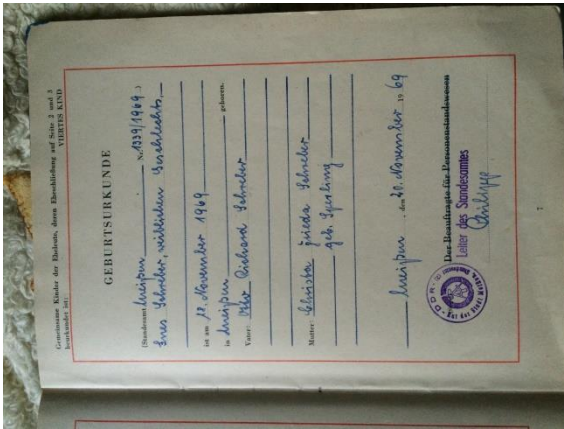 Gemeinsame Kinder der Eheleute, deren Eheschließung auf Seite 2 und 3
beurkundet ist:
VIERTES KIND
GEBURTSURKUNDE
(Standesamt Meißen Nr. 1339/1969.)
Ines Schreiber, weiblichen Geschlechts,
ist am 12. November 1969
in Meißen geboren.
Vater: Richard Schreiber
Mutter: Christa Frieda Schreiber
geb. Sperling
Meißen, den 20. November 19 69
Der Beauftragte für Personenstandswesen
Leiter des Standesamtes
Philipp